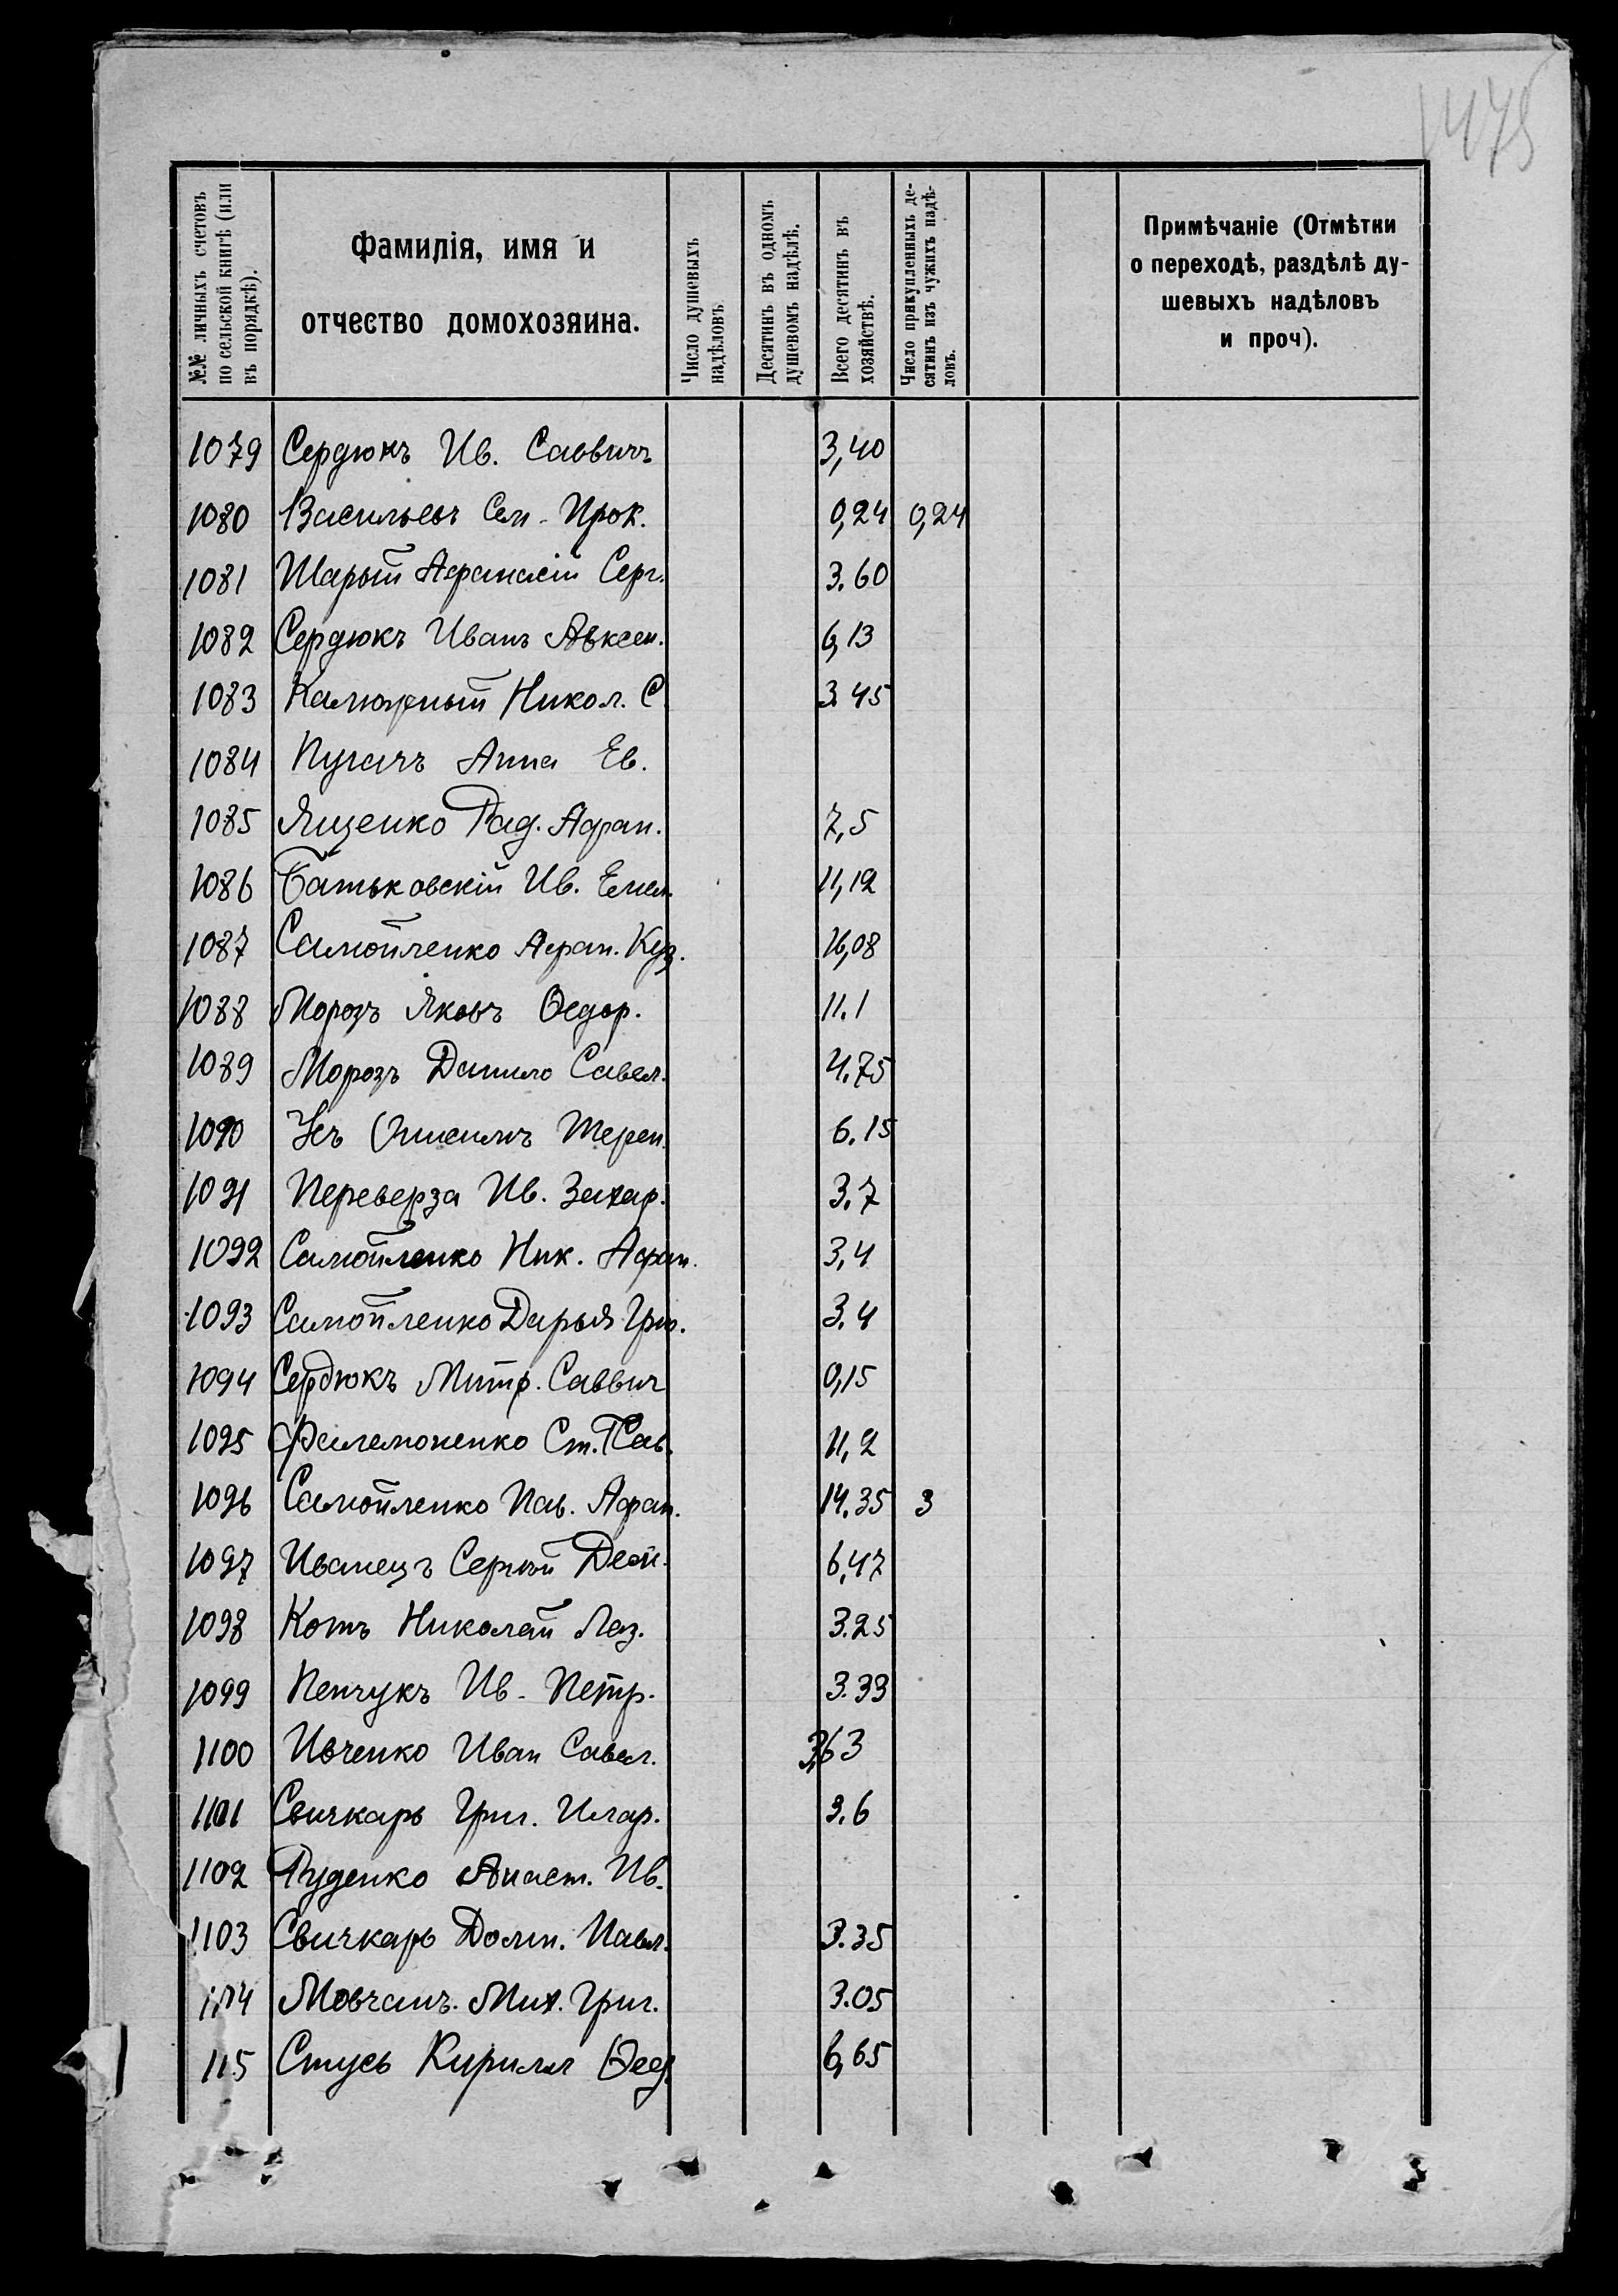 475
№№ личныхъ счетовъ
по сельской книгѣ (или
въ порядкѣ).
Фамилія, имя и
отчество домохозяина.
Число душевыхъ
надѣловъ
Десятинъ въ одномъ
душевомъ надѣлѣ.
Всего десятинъ въ
хозяйствѣ.
Число прикупленныхъ де-
сятинъ изъ чужихъ надѣ-
ловъ.
Примѣчаніе (Отмѣтки
о переходѣ, раздѣлѣ ду-
шевыхъ надѣловъ
и проч).
1079 Сердюкъ Ив. Саввичъ 3,40
1080 Васильевъ Сем. Прок. 0,24 0,24
1081 Шарый Афанасій Серг. 3.60
1082 Сердюкъ Иванъ Авксен. 6,13
1083 Калюжный Никол. С 3.45
1084 Пугачъ Анна Ев.
1085 Ященко Рад. Афан. 7,5
1086 Батьковскій Ив. Емел. 11,12
1087 Самойленко Афан. Куз. 16,08
1088 Морозъ Яковъ Ѳедор. 11.1
1089 Морозъ Данило Савел. 4.75
1090 Усъ Онисимъ Терен. 6.15
1091 Переверза Ив. Захар. 3.7
1092 Самойленко Ник. Афан. 3,4
1093 Самойленко Дарья Гри. 3.4
1094 Сердюкъ Митр. Саввич 0,15
1095 Филемоненко Ст. Сав. 11,2
1096 Самойленко Пав. Афан. 14.35 3
1097 Иванецъ Сергѣй 6,47
1098 Котъ Николай Лаз. 3.25
1099 Пенчукъ Ив. Петр. 3.33
1100 Ивченко Иван Савел. 3,63
1101 Свичкарь Григ. Илар. 3.6
1102 Руденко Анаст. Ив.
1103 Свичкарь Домн. Павл. 3.35
1104 Мовчанъ. Мих. Григ. 3.05
115 Стусь Кирилл Ѳед. 6,65